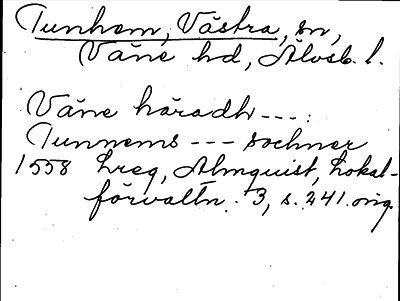 Tunhem, Västra, sn,
Väne hd, Älvsb. l.
Väne häradh ---:
Tunnems --- sochner
1558 Lreg, Almquist, Lokal-
förvaltn. 3, s. 241. orig.